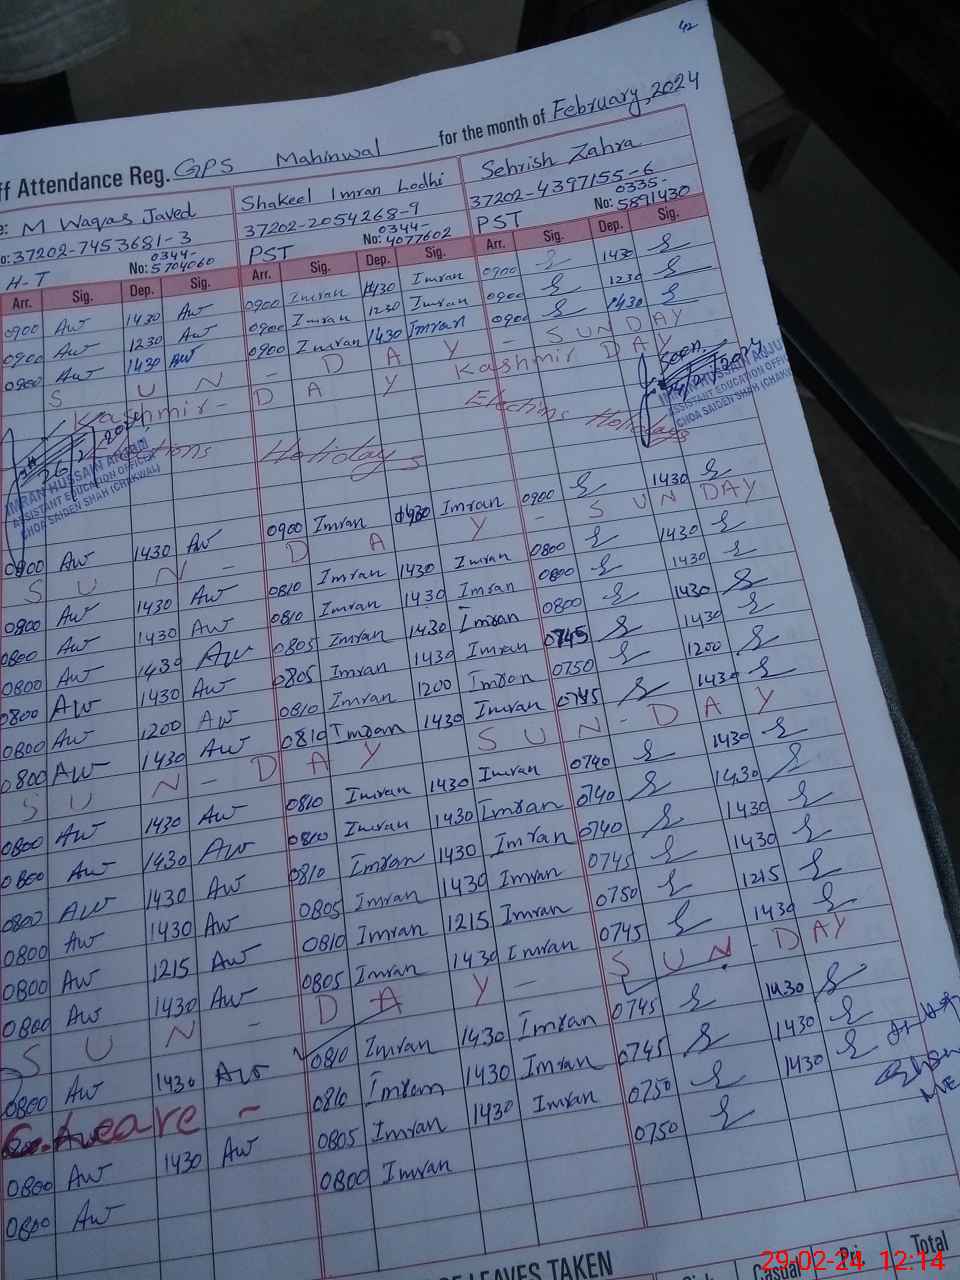 42
ff Attendance Reg. GPS Mahinwal for the month of February, 2024
e: M Waqas Javed Shakeel Imran Lodhi Sehrish Zahra
o: 37202-7453681-3 37202-2054268-9 37202-4397155-6
H-T No: 0344-5704060 PST No: 0344-4077602 PST No: 0335-5891430
Arr. Sig. Dep. Sig. Arr. Sig. Dep. Sig. Arr. Sig. Dep. Sig.
0900 AW 1430 AW 0900 Imran 1430 Imran 0900 1430
0900 AW 1230 AW 0900 Imran 1230 Imran 0900 1230
0900 AW 1430 AW 0900 Imran 1430 Imran 0900 1430
S U N - D A Y - SUNDAY
Kashmir - DAY Kashmir DAY
Elections Holidays Elections Holidays
Seen.
IMRAN HUSSAIN ANJUM
ASSISTANT EDUCATION OFFICER
CHOA SAIDEN SHAH (CHAKWAL)
IMRAN HUSSAIN ANJUM
ASSISTANT EDUCATION OFFICER
CHOA SAIDEN SHAH (CHAKWAL)
0900 AW 1430 AW 0900 Imran 1430 Imran 0900 1430
S U N - D A Y - SUNDAY
0800 AW 1430 AW 0810 Imran 1430 Imran 0800 1430
0800 AW 1430 AW 0810 Imran 1430 Imran 0800 1430
0800 AW 1430 AW 0805 Imran 1430 Imran 0800 1430
0800 AW 1430 AW 0805 Imran 1430 Imran 0745 1430
0800 AW 1200 AW 0810 Imran 1200 Imran 0750 1200
0800 AW 1430 AW 0810 Imran 1430 Imran 0745 1430
S U N - D A Y S U N - D A Y
0800 AW 1430 AW 0810 Imran 1430 Imran 0740 1430
0800 AW 1430 AW 0810 Imran 1430 Imran 0740 1430
0800 AW 1430 AW 0810 Imran 1430 Imran 0740 1430
0800 AW 1430 AW 0805 Imran 1430 Imran 0745 1430
0800 AW 1215 AW 0810 Imran 1215 Imran 0750 1215
0800 AW 1430 AW 0805 Imran 1430 Imran 0745 1430
S U N - D A Y - S U N - D A Y
0800 AW 1430 AW 0810 Imran 1430 Imran 0745 1430
C. Leave - 0810 Imram 1430 Imran 0745 1430
0800 AW 1430 AW 0805 Imran 1430 Imran 0750 1430
0800 AW 0800 Imran 0750
OF LEAVES TAKEN
Casual Pri. Total
29-02-24 12:14